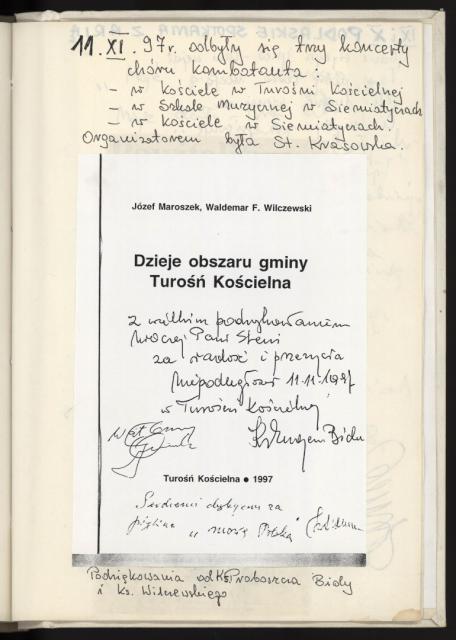 11.XI.97r. odbyły się trzy koncerty
chóru kombatanta :
– w kościele w Turośni Kościelnej
– w Szkole Muzycznej w Siemiatyczach
– w kościele w Siemiatyczach.
Organizatorem była St. Krasowska.
Józef Maroszek, Waldemar F. Wilczewski
Dzieje obszaru gminy
Turośń Kościelna
z wielkim podziękowaniem
Pani Steni
za radość i przeżycia
Niepodległości 11.11.1997
w Turośni Kościelnej
Turośń Kościelna ● 1997
Serdecznie dziękujemy za
" Polskę "
Podziękowania od Ks. Proboszcza Biały
i Ks. Wilczewskiego